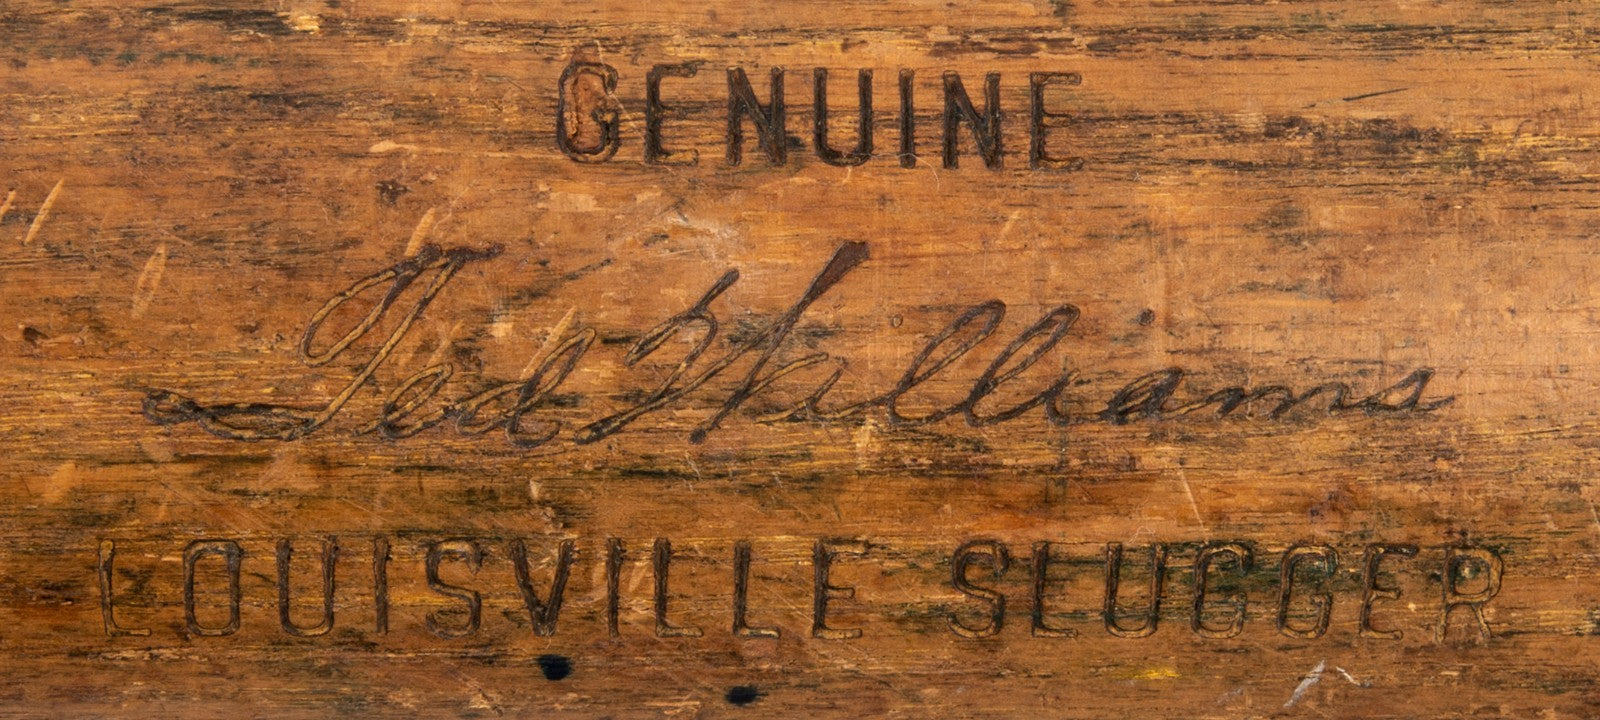 GENUINE
Ted Williams
LOUISVILLE SLUGGER